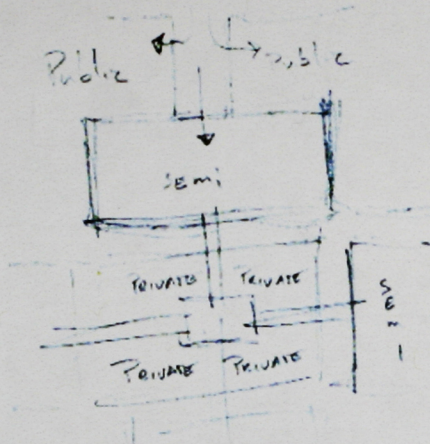 Public
Public
SEMi
PRIVATE PRIVATE
SEMI
PRIVATE PRIVATE